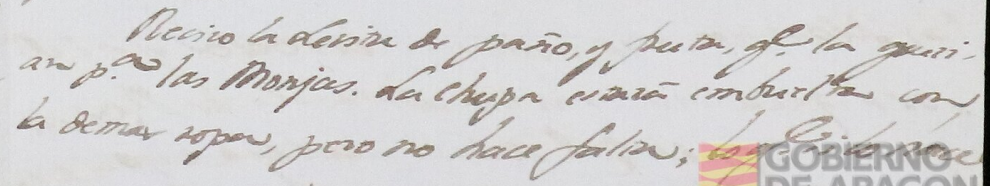 Recivo la levita de paño, y fruta, qe. la queri-
an pa. las Monjas. La Chupa estará embuelta con
la demas ropa, pero no hace falta; lo qe. si la hace
GOBIERNO
DE ARAGON